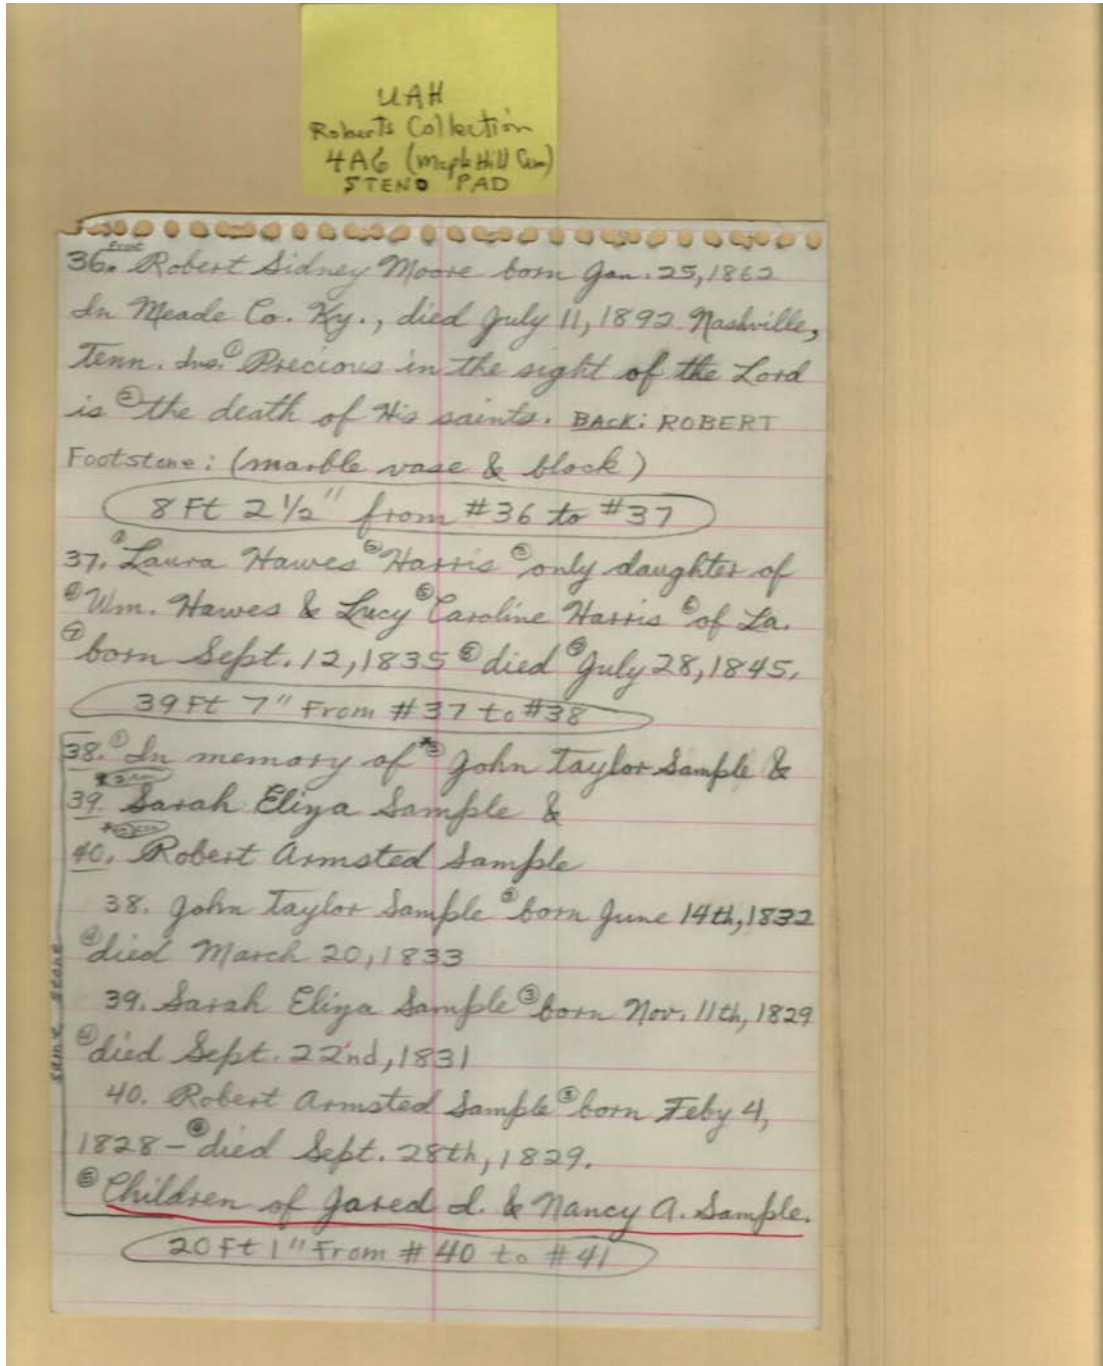 UAH
Roberts Collection
4A6 (Maple Hill Cem)
STENO PAD
Front
36. Robert Sidney Moore born Jan. 25, 1862
In Meade Co. Ky., died July 11, 1892. Nashville,
Tenn. Ins. ① Precious in the sight of the Lord
is ② the death of His saints. BACK: ROBERT
Footstone: (marble vase & block)
8 Ft 2 1/2" from #36 to #37
37. ① Laura Hawes ② Harris ③ only daughter of
④ Wm. Hawes & Lucy ⑤ Caroline Harris ⑥ of La.
⑦ born Sept. 12, 1835 ⑧ died ⑨ July 28, 1845.
39 Ft 7" From #37 to #38
38. ① In memory of * ② John Taylor Sample &
39. Sarah Eliza Sample &
40. Robert Armsted Sample
38. John Taylor Sample ③ born June 14th, 1832
④ died March 20, 1833
39. Sarah Eliza Sample ③ born Nov. 11th, 1829
④ died Sept. 22nd, 1831
40. Robert Armsted Sample ③ born Feby 4,
1828 - ④ died Sept. 28th, 1829.
⑤ Children of Jared I. & Nancy A. Sample.
same stone
20 Ft 1" From #40 to #41